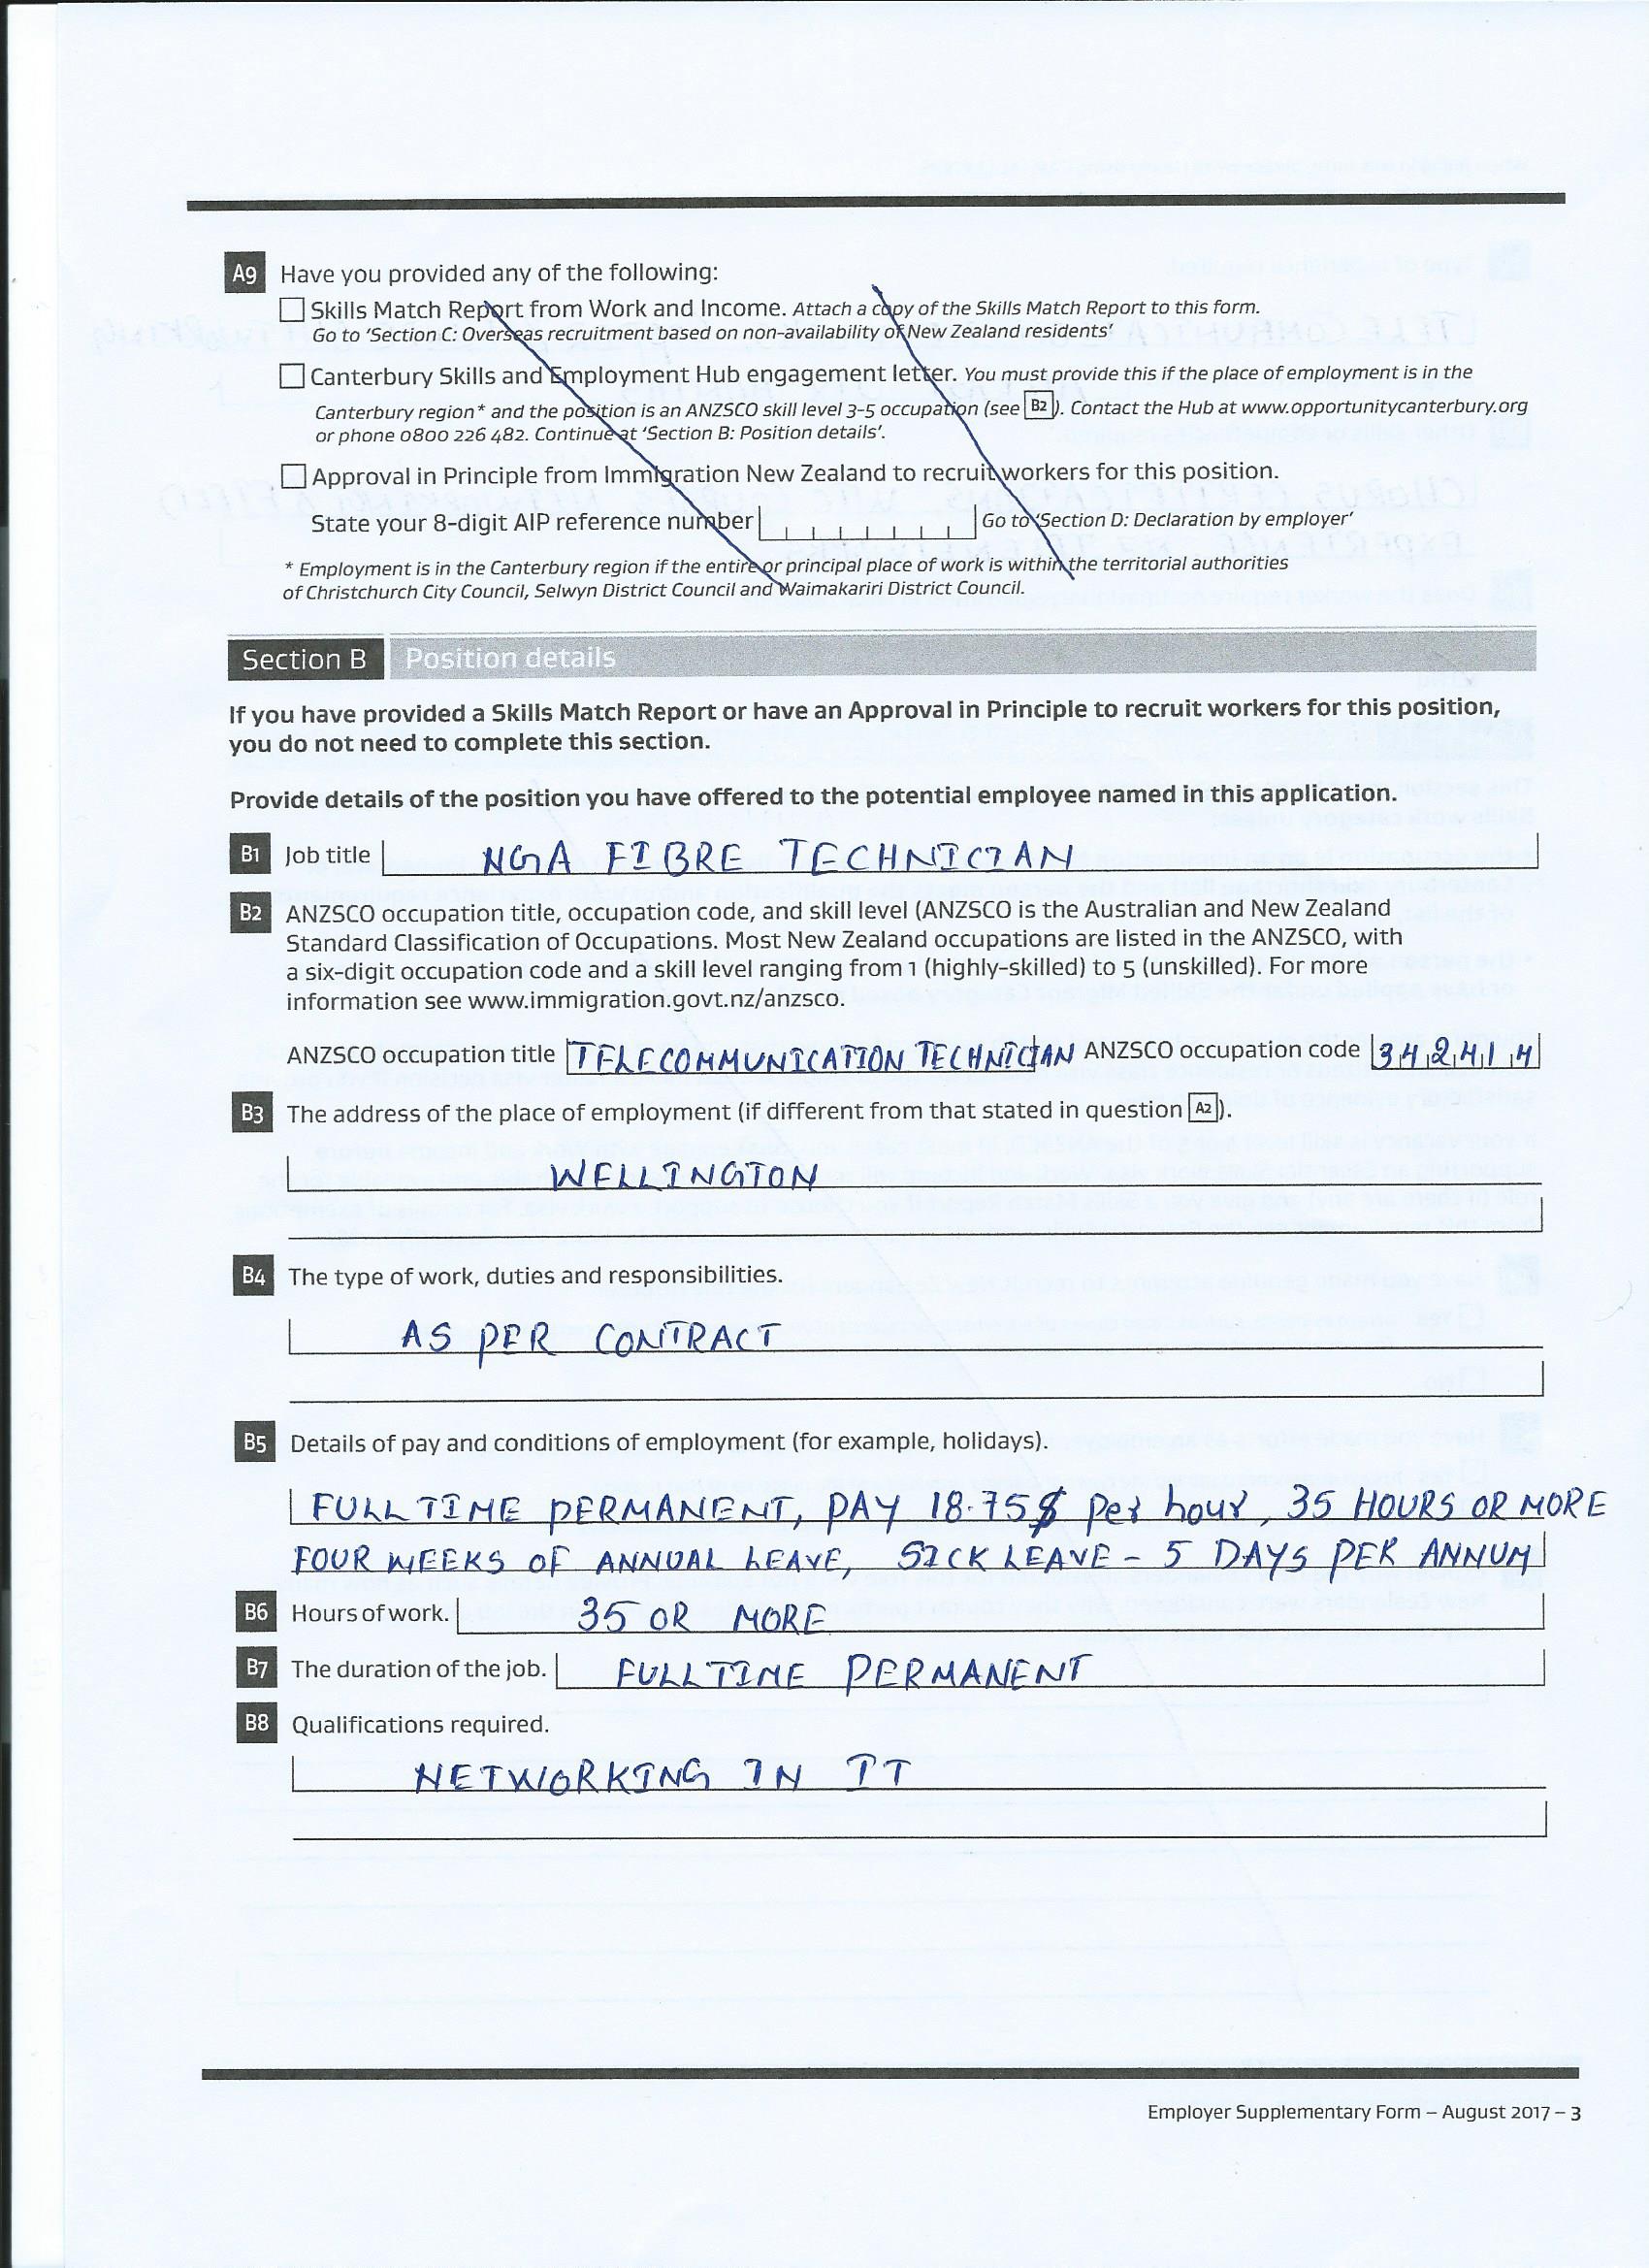 A9 Have you provided any of the following:
Skills Match Report from Work and Income. Attach a copy of the Skills Match Report to this form.
Go to 'Section C: Overseas recruitment based on non-availability of New Zealand residents'
Canterbury Skills and Employment Hub engagement letter. You must provide this if the place of employment is in the
Canterbury region* and the position is an ANZSCO skill level 3-5 occupation (see B2). Contact the Hub at www.opportunitycanterbury.org
or phone 0800 226 482. Continue at 'Section B: Position details'.
Approval in Principle from Immigration New Zealand to recruit workers for this position.
State your 8-digit AIP reference number Go to 'Section D: Declaration by employer'
* Employment is in the Canterbury region if the entire or principal place of work is within the territorial authorities
of Christchurch City Council, Selwyn District Council and Waimakariri District Council.
Section B Position details
If you have provided a Skills Match Report or have an Approval in Principle to recruit workers for this position,
you do not need to complete this section.
Provide details of the position you have offered to the potential employee named in this application.
B1 Job title NGA FIBRE TECHNICIAN
B2 ANZSCO occupation title, occupation code, and skill level (ANZSCO is the Australian and New Zealand
Standard Classification of Occupations. Most New Zealand occupations are listed in the ANZSCO, with
a six-digit occupation code and a skill level ranging from 1 (highly-skilled) to 5 (unskilled). For more
information see www.immigration.govt.nz/anzsco.
ANZSCO occupation title TELECOMMUNICATION TECHNICIAN ANZSCO occupation code 342414
B3 The address of the place of employment (if different from that stated in question A2).
WELLINGTON
B4 The type of work, duties and responsibilities.
AS PER CONTRACT
B5 Details of pay and conditions of employment (for example, holidays).
FULL TIME PERMANENT, PAY 18.75$ per hour, 35 HOURS OR MORE
FOUR WEEKS OF ANNUAL LEAVE, SICK LEAVE - 5 DAYS PER ANNUM
B6 Hours of work. 35 OR MORE
B7 The duration of the job. FULL TIME PERMANENT
B8 Qualifications required.
NETWORKING IN IT
Employer Supplementary Form – August 2017 – 3